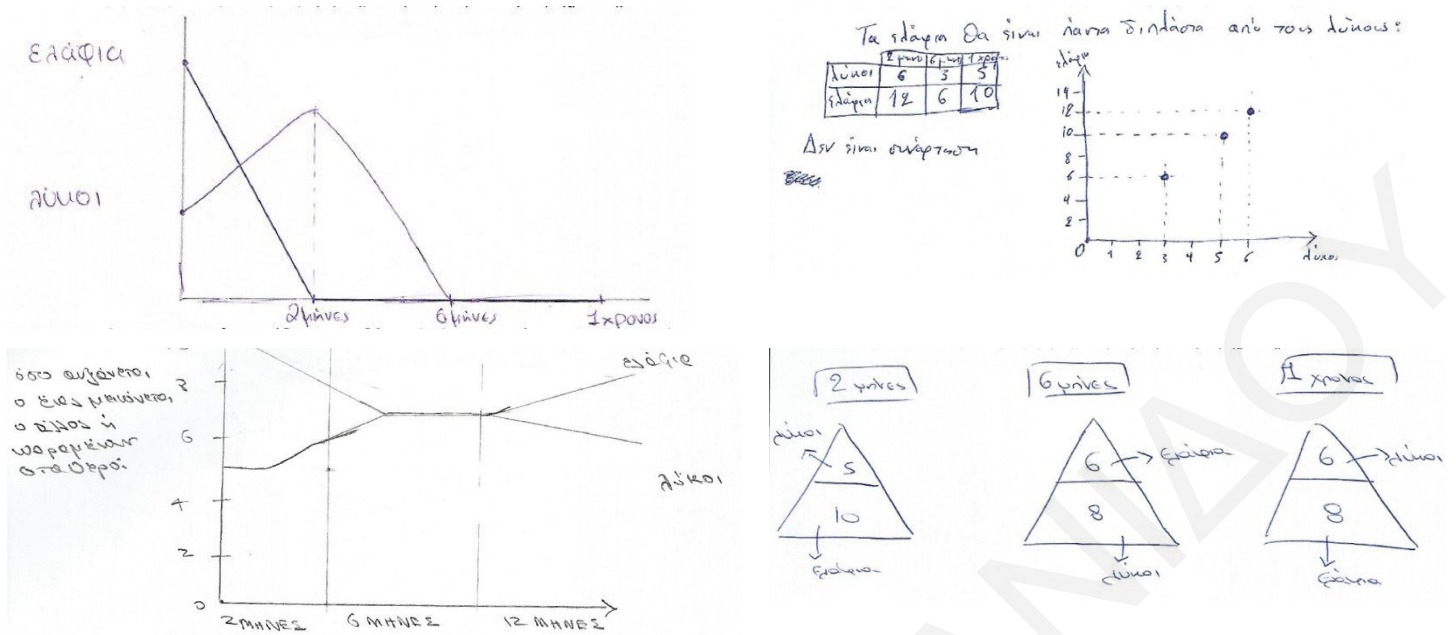 ελάφια
λύκοι
2μήνες 6μήνες 1χρονος
Τα ελάφια θα είναι πάντα διπλάσια από τους λύκους:
2 μήνες 6 μήνες 1 χρόνο
λύκοι 6 3 5
ελάφια 12 6 10
Δεν είναι συνάρτηση
ελάφια
14
12
10
8
6
4
2
0 1 2 3 4 5 6 λύκοι
όσο αυξάνεται
ο ένας μειώνεται
ο άλλος ή
παραμένουν
σταθεροί.
8
6
4
2
0
ελάφια
λύκοι
2 ΜΗΝΕΣ 6 ΜΗΝΕΣ 12 ΜΗΝΕΣ
2 μήνες
λύκοι
5
10
ελάφια
6 μήνες
6 ελάφια
8
λύκοι
1 χρονος
6 λύκοι
8
ελάφια
ΝΙΔΟΥ